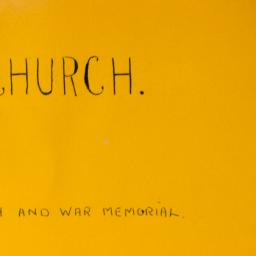 CHURCH.
AND WAR MEMORIAL.